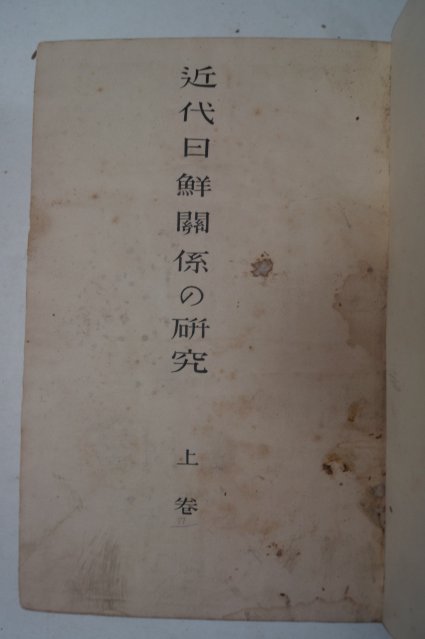 近代日鮮關係の硏究
上卷